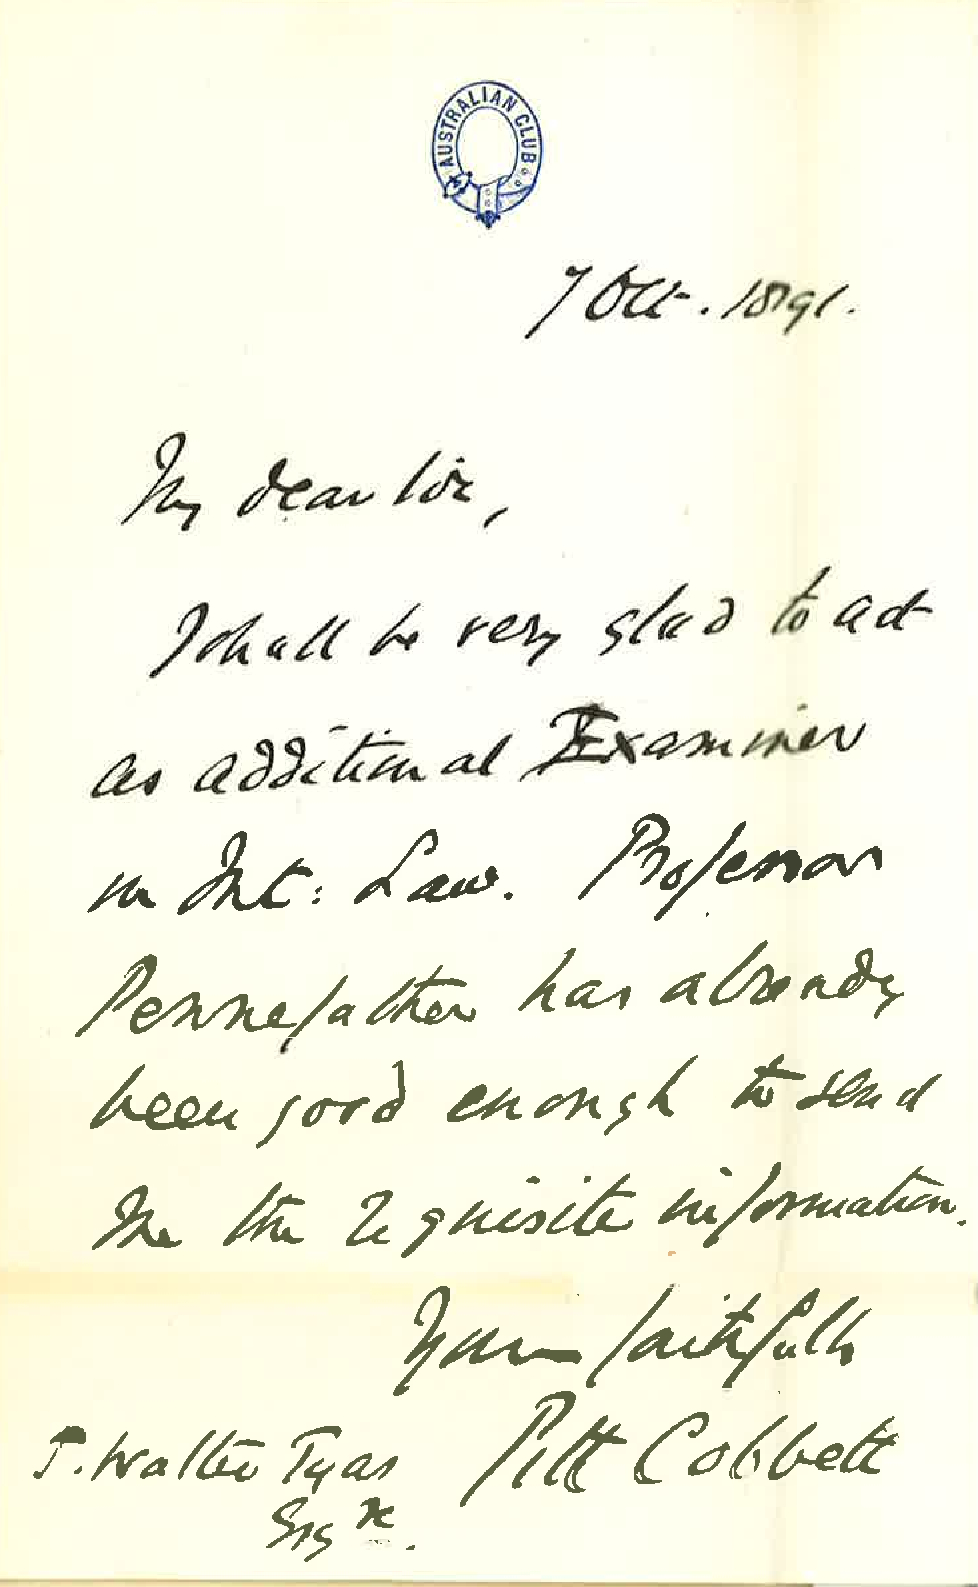 AUSTRALIAN CLUB
7 Oct. 1891.
My dear Sir,
I shall be very glad to act
as additional Examiner
in Int: Law. Professor
Pennefather has already
been good enough to send
me the requisite information.
Yours faithfully
Pitt Cobbett
J. Walter Tyas
Esqre.